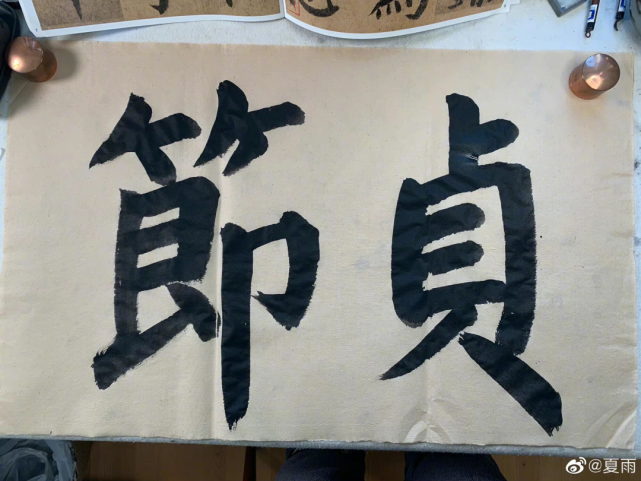 節貞
@夏雨